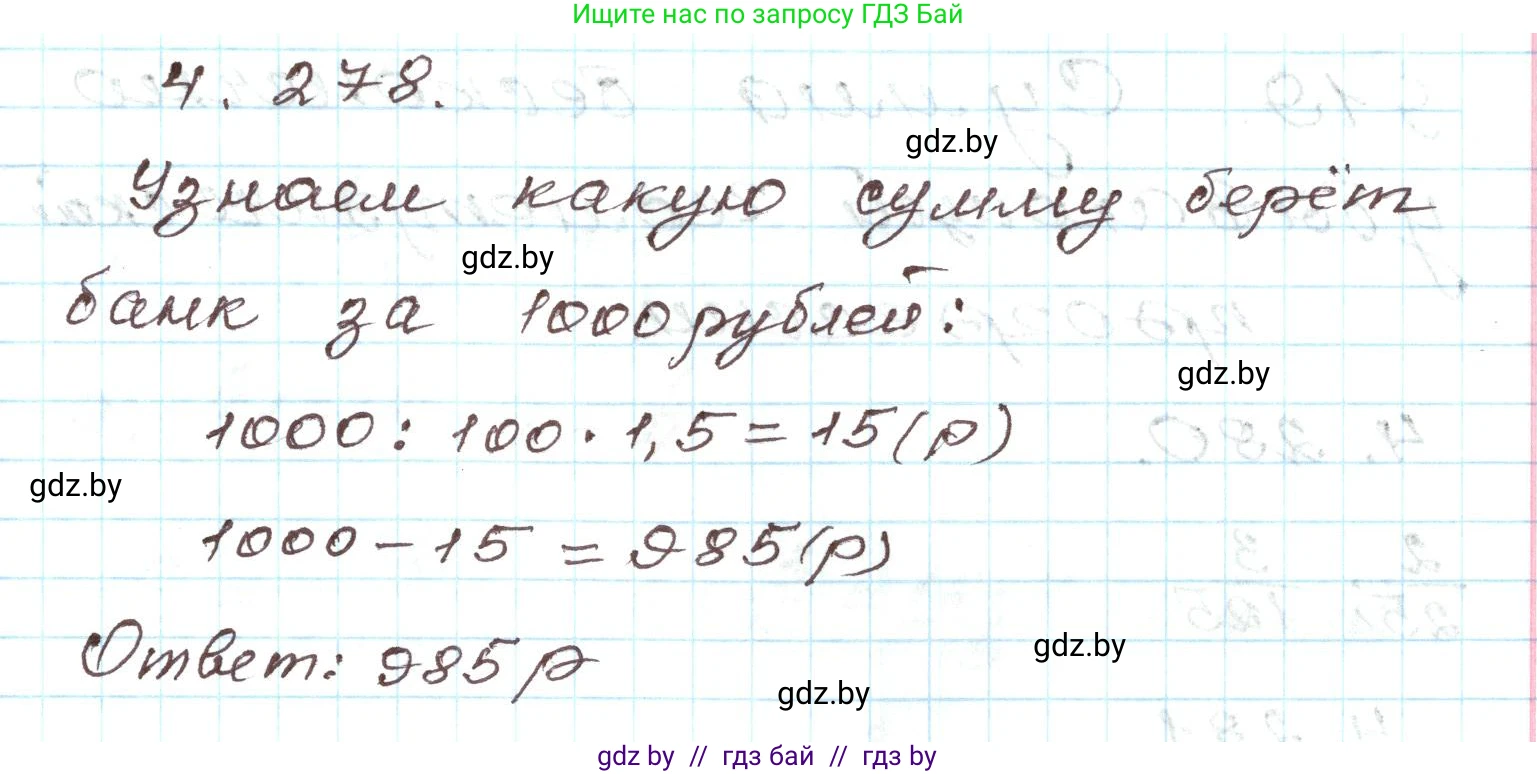 Ищите нас по запросу ГДЗ Бай
4. 278.
gdz.by
Узнаем какую сумму берёт
gdz.by
банк за 1000 рублей:
gdz.by
1000 : 100 · 1,5 = 15 (р)
gdz.by
1000 - 15 = 985 (р)
Ответ: 985 р
gdz.by
gdz.by
gdz by // гдз бай // гдз by